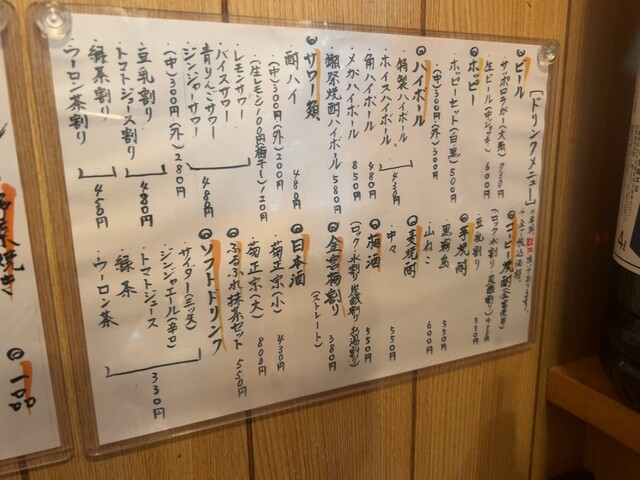 [ドリンクメニュー]
ビール
・サッポロラガー(大瓶) 730円
・生ビール(中ジョッキ) 600円
ホッピー
・ホッピーセット(白黒) 500円
・(中)300円(外)300円
ハイボール
・特製ハイボール
・ホイスハイボール 430円
・角ハイボール 480円
・メガハイボール 850円
・獺祭焼酎ハイボール 580円
サワー類
・酎ハイ 480円
(中)300円(外)200円
(生レモン)100円(梅干し)120円
・レモンサワー
・バイスサワー
・青りんごサワー
・ジンジャーサワー 480円
(中)300円(外)280円
・豆乳割り
・トマトジュース割り 480円
・緑茶割り
・ウーロン茶割り 450円
コーヒー焼酎
・豆乳割り
芋焼酎
・黒霧島 550円
・山ねこ 600円
麦焼酎
・中々 550円
梅酒 550円
(ロック、水割り、炭酸割り、お湯割り)
金宮梅割り 380円
(ストレート)
日本酒
・菊正宗(小) 430円
・菊正宗(大) 800円
・ぷるぷれ抹茶セット 550円
ソフトドリンク
・サイダー(三ツ矢)
・ジンジャエール(辛口)
・トマトジュース
・緑茶
・ウーロン茶 330円
一品